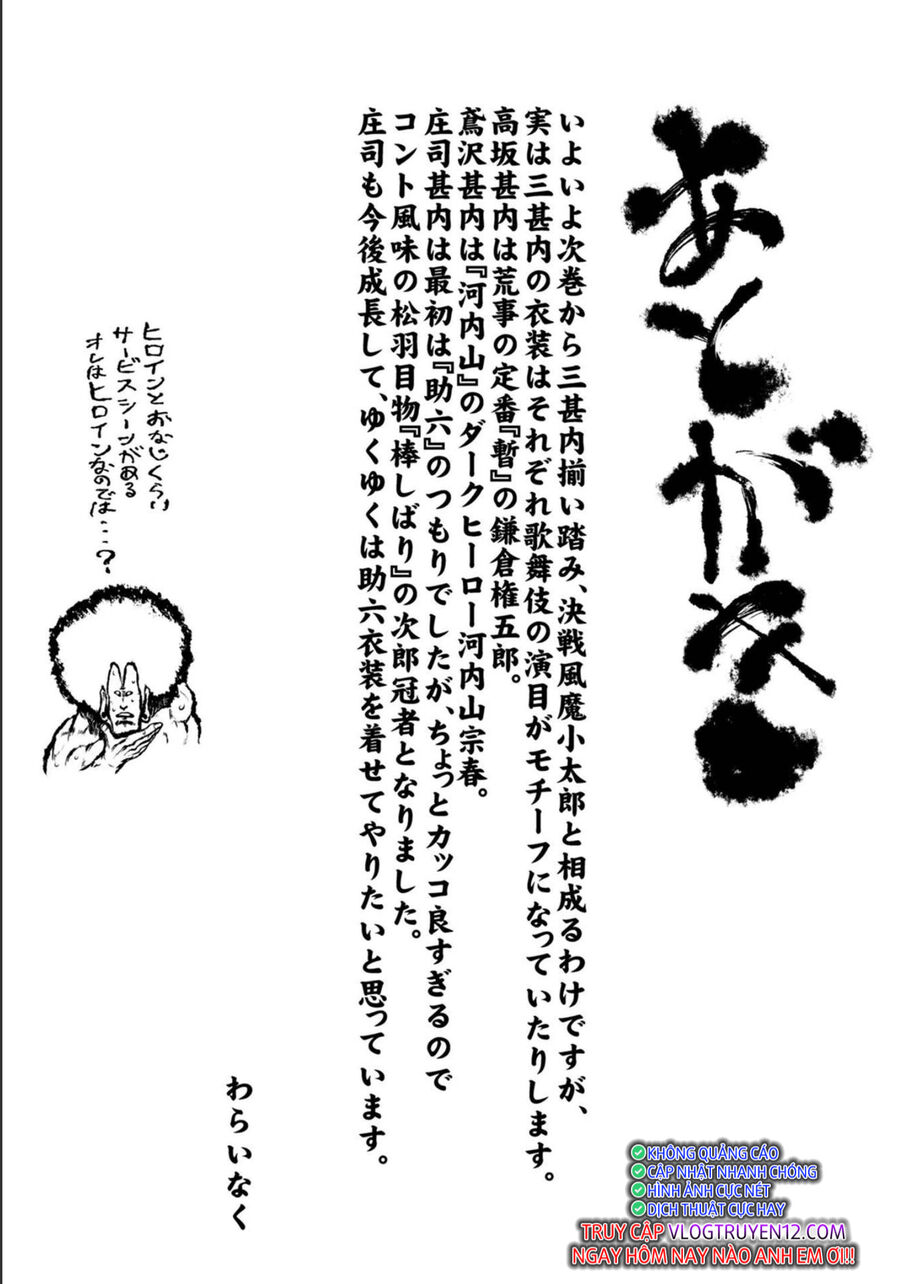 あとがき
いよいよ次巻から三甚内揃い踏み、決戦風魔小太郎と相成るわけですが、
実は三甚内の衣装はそれぞれ歌舞伎の演目がモチーフになっていたりします。
高坂甚内は荒事の定番『暫』の鎌倉権五郎。
鳶沢甚内は『河内山』のダークヒーロー河内山宗春。
庄司甚内は最初は『助六』のつもりでしたが、ちょっとカッコ良すぎるので
コント風味の松羽目物『棒しばり』の次郎冠者となりました。
庄司も今後成長して、ゆくゆくは助六衣装を着せてやりたいと思っています。
わらいなく
ヒロインとおなじくらい
サービスシーンがある
オレはヒロインなのでは…?
KHÔNG QUẢNG CÁO
CẬP NHẬT NHANH CHÓNG
HÌNH ẢNH CỰC NÉT
DỊCH THUẬT CỰC HAY
TRUY CẬP VLOGTRUYEN12.COM
NGAY HÔM NAY NÀO ANH EM ƠI!!